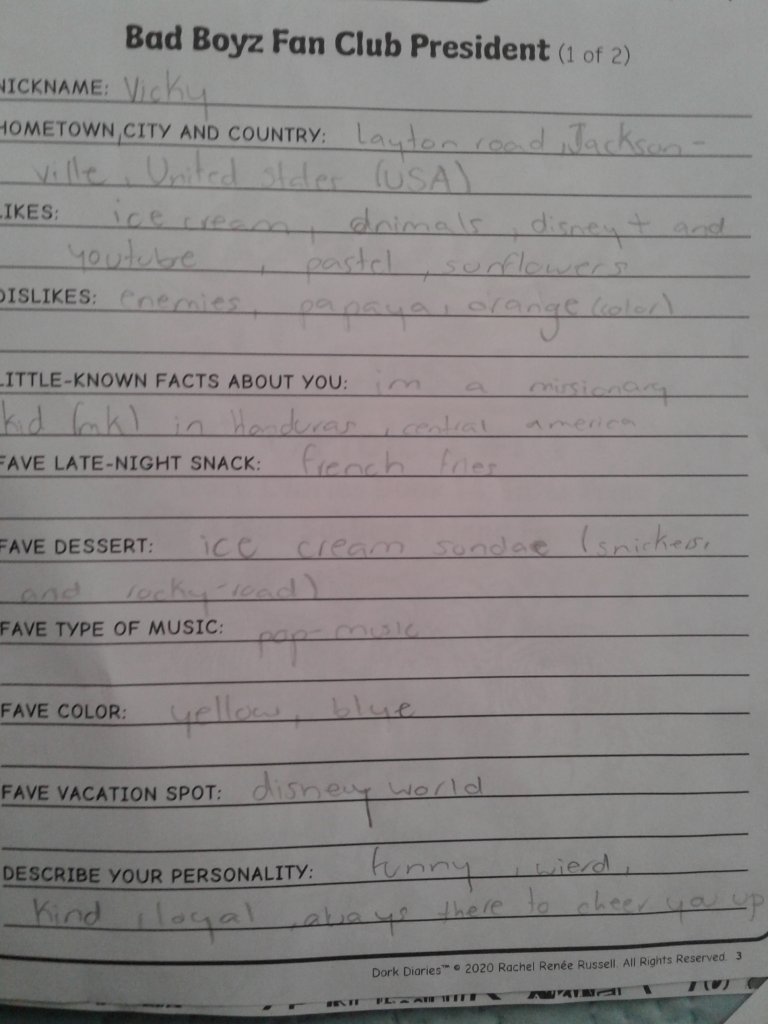 Bad Boyz Fan Club President (1 of 2)
NICKNAME: Vicky
HOMETOWN, CITY AND COUNTRY: Layton road, Jackson-
ville, United states (USA)
LIKES: ice cream, animals, disney+ and
youtube, pastel, sunflowers
DISLIKES: enemies, papaya, orange (color)
LITTLE-KNOWN FACTS ABOUT YOU: im a missionary
kid (mk) in Honduras, central america
FAVE LATE-NIGHT SNACK: french fries
FAVE DESSERT: ice cream sundae (snickers,
and rocky-road)
FAVE TYPE OF MUSIC: pop-music
FAVE COLOR: yellow, blue
FAVE VACATION SPOT: disney world
DESCRIBE YOUR PERSONALITY: funny, wierd,
kind, loyal, always there to cheer ya up
Dork Diaries™ © 2020 Rachel Renée Russell. All Rights Reserved. 3